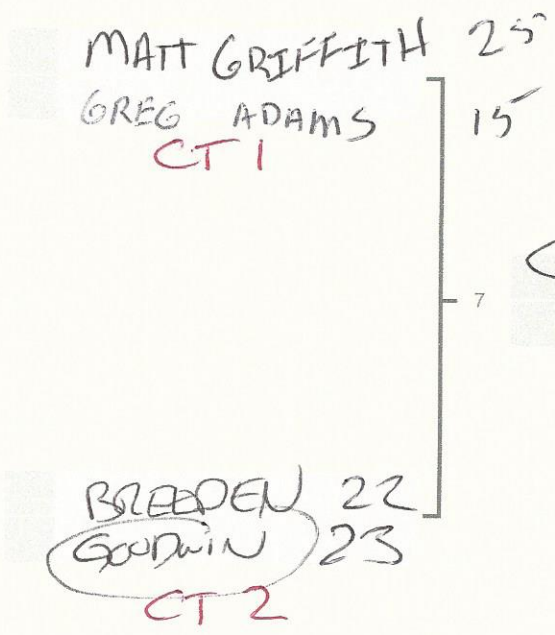 MATT GRIFFITH 25
GREG ADAMS 15
CT 1
7
BREEDEN 22
GOODWIN 23
CT 2